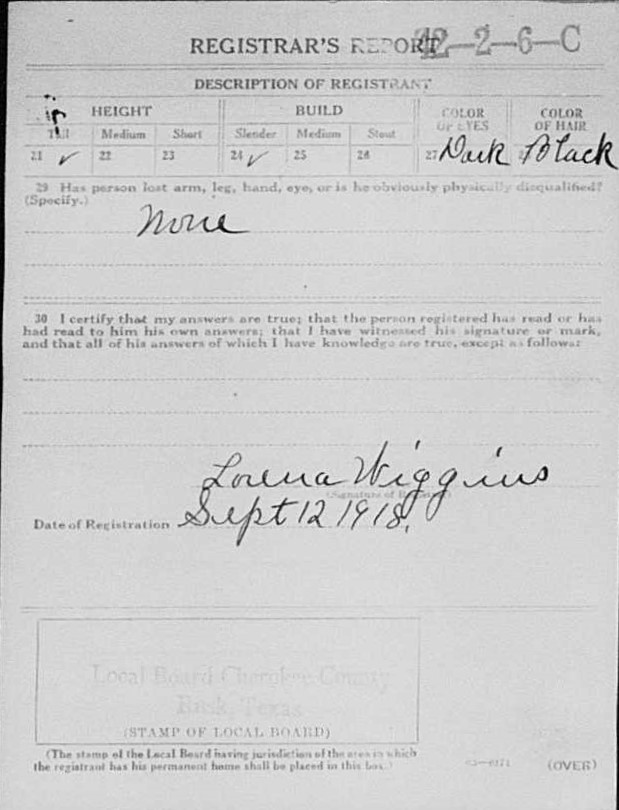 REGISTRAR'S REPORT 42-2-6-C
DESCRIPTION OF REGISTRANT
HEIGHT BUILD COLOR OF EYES COLOR OF HAIR
Tall Medium Short Slender Medium Stout
21 ✓ 22 23 24 ✓ 25 26 27 Dark Black
29 Has person lost arm, leg, hand, eye, or is he obviously physically disqualified?
(Specify.)
None
30 I certify that my answers are true; that the person registered has read or has
had read to him his own answers; that I have witnessed his signature or mark,
and that all of his answers of which I have knowledge are true, except as follows:
Lorena Wiggins
(Signature of Registrar)
Date of Registration Sept 12 1918.
Local Board Cherokee County
Rusk, Texas
(STAMP OF LOCAL BOARD)
(The stamp of the Local Board having jurisdiction of the area in which
the registrant has his permanent home shall be placed in this box.)
(OVER)